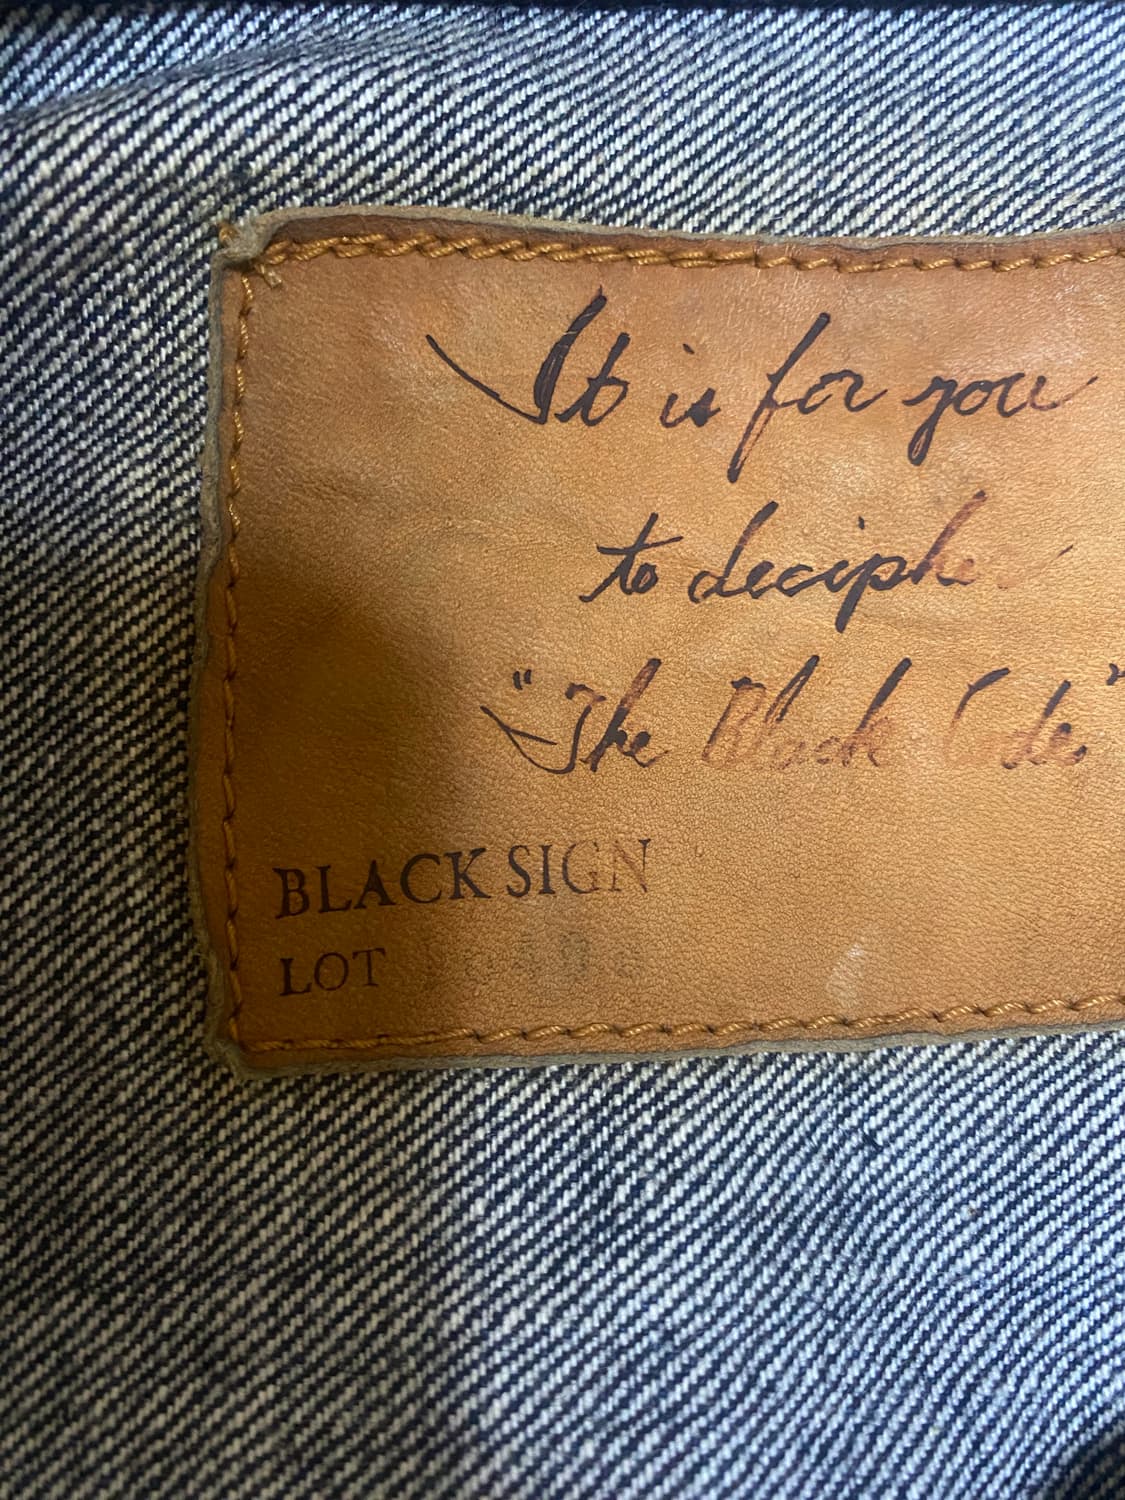 It is for you
to decipher
"The Black Code"
BLACK SIGN
LOT